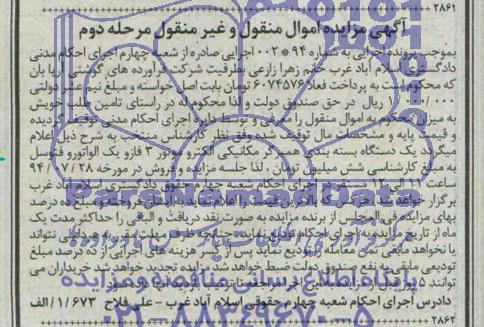 ۲۸۶۱
آگهی مزایده اموال منقول و غیر منقول مرحله دوم
بموجب پرونده اجرایی به شماره ۹۴*۰۰۲ اجرایی صادره از شعبه چهارم اجرای احکام مدنی
دادگستری اسلام آباد غرب خانم زهرا زارعی بطرفیت شرکت فرآورده های گوشتی آریا پان
که محکوم است به پرداخت فعلا ۶۰۷۴۵۷۶ تومان بابت اصل خواسته و مبلغ نیم عشر دولتی
ریال در حق صندوق دولت و لذا محکوم له در راستای تامین طلب خویش
به میزان محکوم به اموال منقول را معرفی و توسط دایره اجرای احکام مدنی توقیف گردیده
و قیمت پایه و مشخصات مال توقیف شده وفق نظر کارشناس منتخب به شرح ذیل اعلام
میگردد یک دستگاه بسته بندی همبرگر مکانیکی الکترو موتور ۳ فازو یک الواتورو فتوسل
به مبلغ کارشناسی شش میلیون تومان، لذا جلسه مزایده و فروش در مورخه ۹۴/۰۷/۲۸
ساعت ۱۱ الی ۱۲ مستقر در اجرای احکام شعبه چهارم حقوقی دادگستری اسلام آباد غرب
بر گزار خواهد شد هر کس که بالاترین قیمت را اعلام نماید به ایشان فروخته و مبلغ ده درصد
بهای مزایده فی المجلس از برنده مزایده به صورت نقد دریافت و الباقی را حداکثر مدت یک
ماه از تاریخ مزایده به اجرای احکام تودیع نماید، چنانچه ظرف مهلت مقرر به هر دلیلی نتواند
یا نخواهد مابقی ثمن معامله را تودیع نماید پس از کسر هزینه های اجرایی از ده درصد مبلغ
تودیعی مابقی به نفع صندوق دولت ضبط خواهد شد و مزایده تجدید خواهد شد خریداران می
توانند ۵ روز قبل از مزایده
دادرس اجرای احکام شعبه چهارم حقوقی اسلام آباد غرب - علی فلاح ۱/۶۷۳/الف
۲۸۶۲
پایگاه اطلاع رسانی مناقصه و مزایده
۰۲۱-۸۸۳۴۹۶۷۰-۵